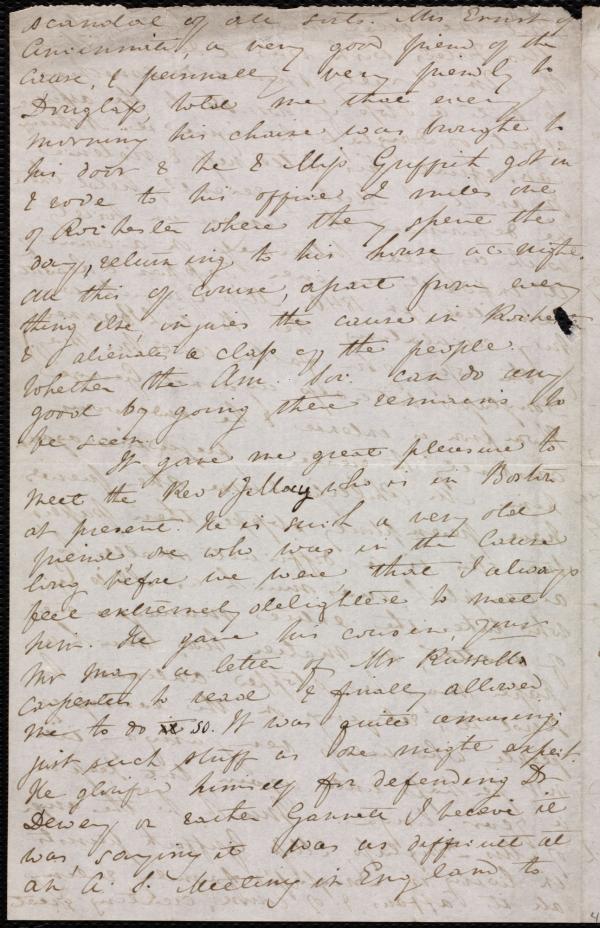 scandal of all sorts. Mrs Ernst of
Cincinnati, a very good friend of the
cause, & personally very friendly to
Douglass, told me that every
morning his chaise was brought to
his door & he & Miss Griffith got in
& rode to his office 2 miles out
of Rochester where they spent the
day, returning to his house at night.
All this of course, apart from every
thing else, injures the cause in Rochester
& alienates a class of the people.
Whether the Am. Soc. can do any
good by going there remains to
be seen.
It gave me great pleasure to
meet the Rev S J May who is in Boston
at present. He is such a very old
friend one who was in the Cause
long before we were, that I always
feel extremely delighted to meet
him. He gave his cousin, your
Mr May a letter of Mr Russell
Carpenter to read & finally allowed
me to do so. It was quite amusing,
just such stuff as one might expect.
He glorified himself for defending Dr
Dewey or rather Gannett I believe it
was, saying it was as difficult at
an A. S. Meeting in England to